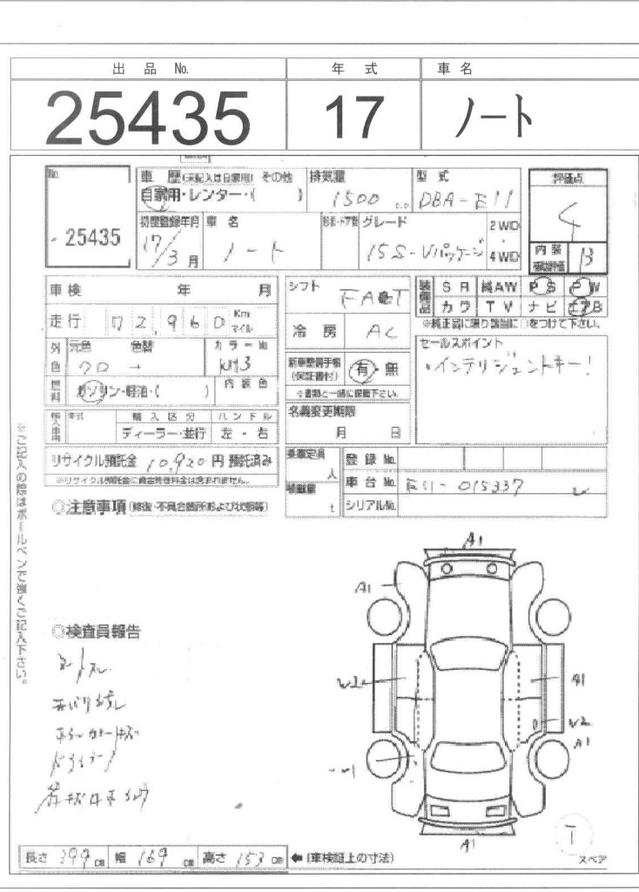 出品 No. 年式 車名
25435 17 ノート
No. 25435
車歴 (未記入は自家用) その他 排気量 型式 評価点
自家用・レンター・( ) 1500 c.c DBA-E11 4
初度登録年月 車名 グレード 2WD・4WD 内装 B
17/3月 ノート 15S-Vパッケージ
車検 年 月 シフト FAT 装備品 SR 純AW PS PW
カワ TV ナビ エアB
走行 72,960 Km マイル 冷房 AC ※純正品に限り該当に○をつけて下さい。
外色 元色 色替 カラーNo. セールスポイント
クロ → KH3 新車整備手帳 (保証書付) 有・無 ・インテリジェントキー!
燃料 ガソリン・軽油・( ) 内装色 ※書類と一緒に保管下さい。
輸入車用 年式 輸入区分 ハンドル 名義変更期限
ディーラー・並行 左・右 月 日
リサイクル預託金 10,920円 預託済み 乗車定員 人 登録No.
※リサイクル預託金に資金管理料金は含まれません。 積載量 t 車台No. E11-015337
シリアルNo.
◎注意事項 (修復・不具合箇所および状態等)
※ご記入の際はボールペンで強くご記入下さい。
A1
A1
◎検査員報告
シートスレ
A1
W2
A1
A1
T
スペア
長さ 399 cm 幅 169 cm 高さ 153 cm ←(車検証上の寸法)